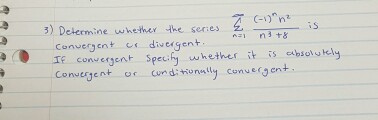 3) Determine whether the series ∞ Σ n=1 (-1)ⁿ n² / n³ + 8 is
convergent or divergent.
IF convergent Specify whether it is absolutely
convergent or conditionally convergent.